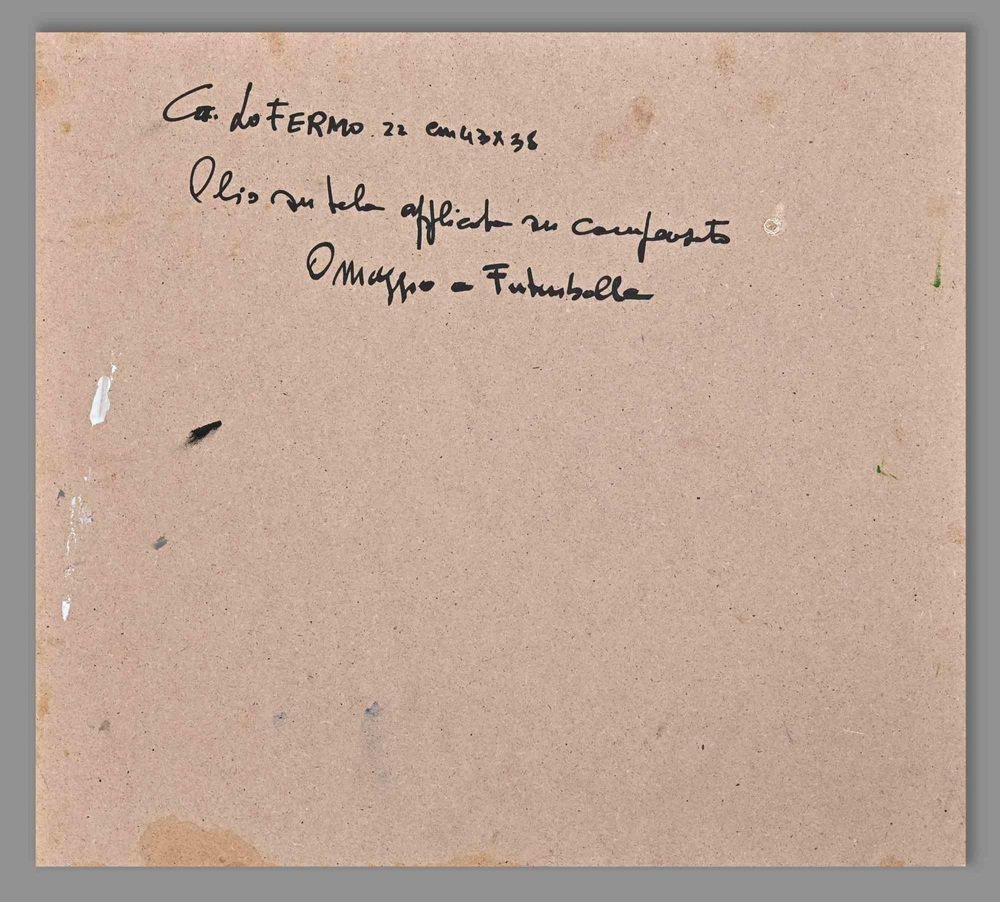 Co. Lo FERMO. 22 cm 43x38
Olio su tela applicata su compensato
Omaggio a Futurballa